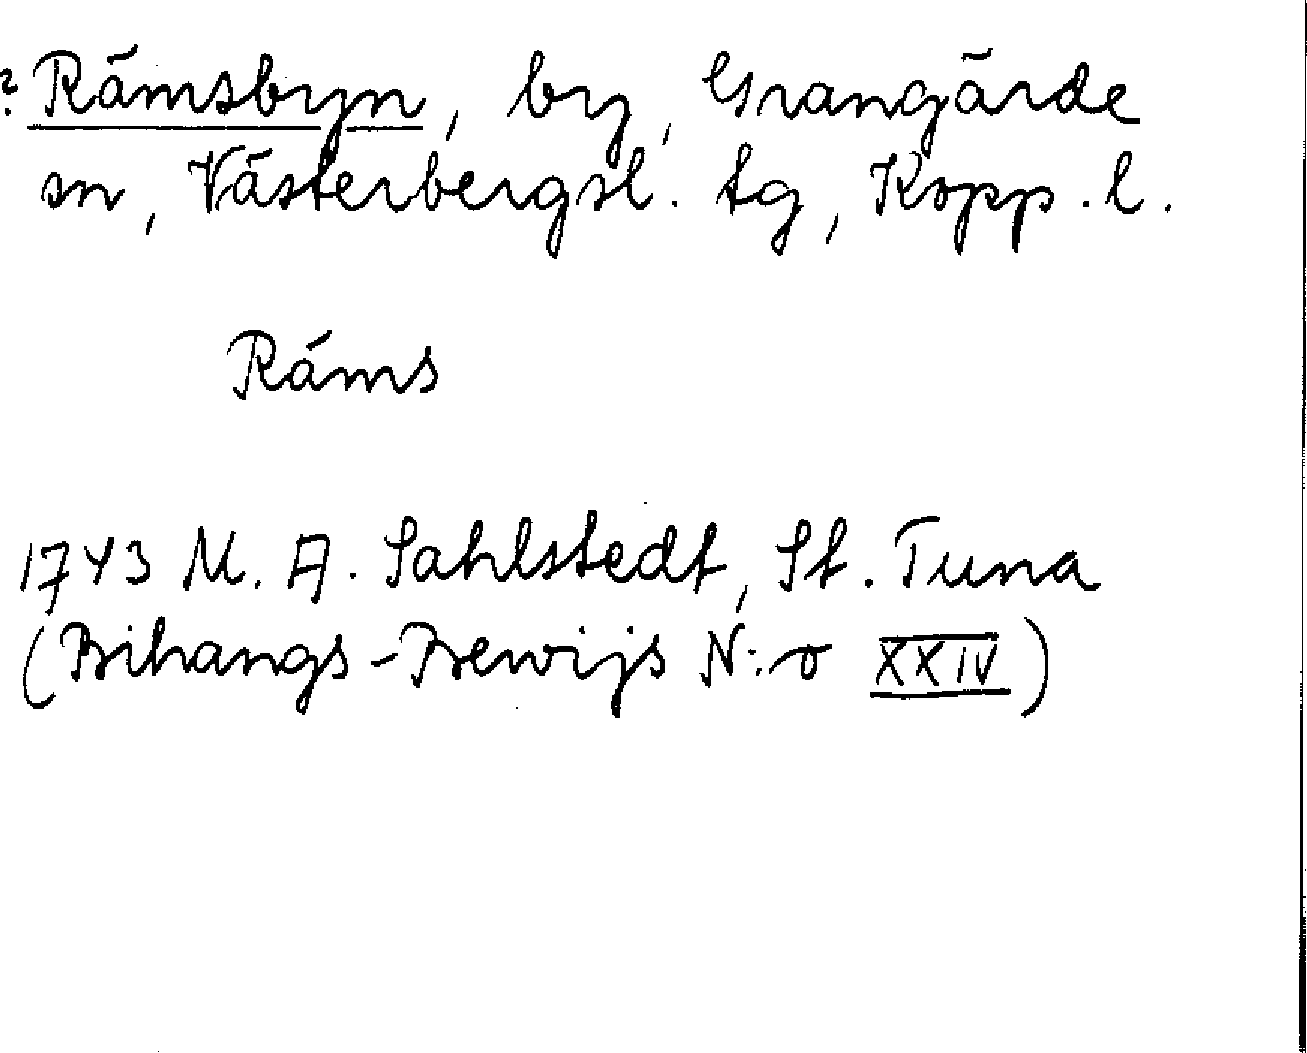 ? Rämsbyn, by, Grangärde
sn, Västerbergsl. tg, Kopp. l.
Räms
1743 M. A. Sahlstedt, St. Tuna
(Bihangs-Bewijs N:o XXIV)